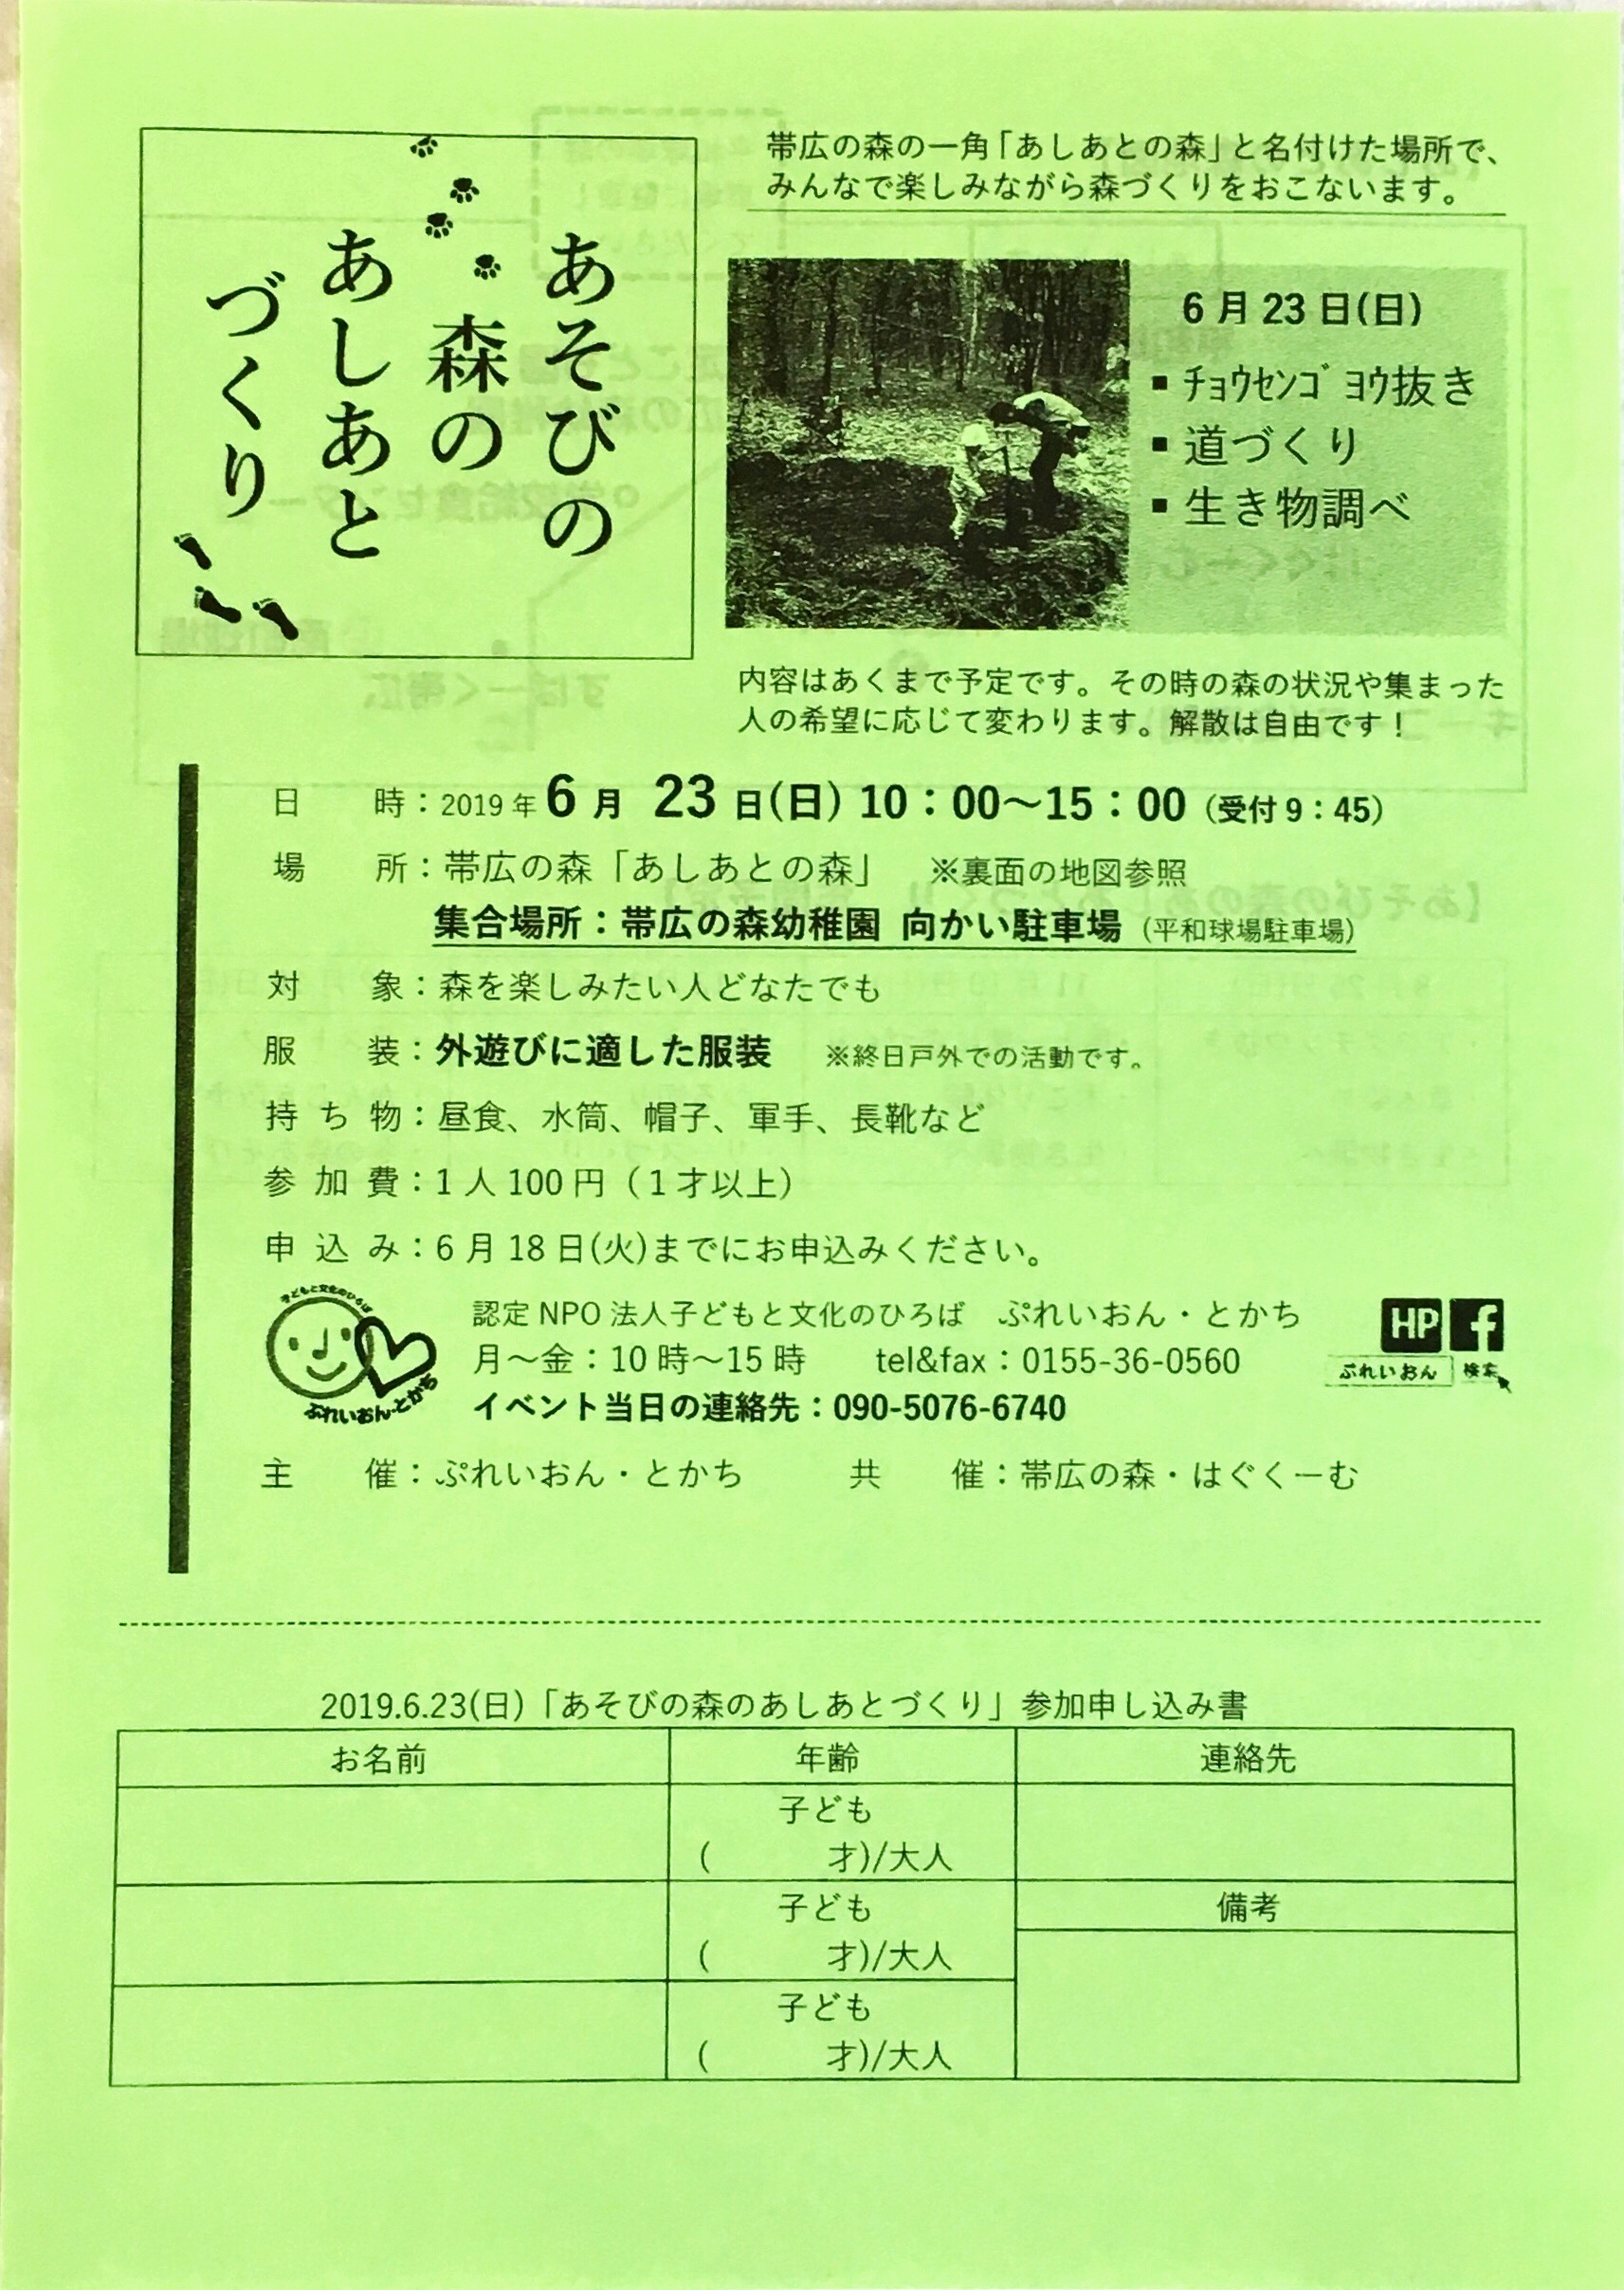 あそびの
森の
あしあと
づくり
帯広の森の一角「あしあとの森」と名付けた場所で、
みんなで楽しみながら森づくりをおこないます。
6月23日(日)
▪ ﾁｮｳｾﾝｺﾞﾖｳ抜き
▪ 道づくり
▪ 生き物調べ
内容はあくまで予定です。その時の森の状況や集まった
人の希望に応じて変わります。解散は自由です！
日　時：2019年6月 23日(日) 10：00～15：00（受付9：45）
場　所：帯広の森「あしあとの森」　※裏面の地図参照
集合場所：帯広の森幼稚園 向かい駐車場（平和球場駐車場）
対　象：森を楽しみたい人どなたでも
服　装：外遊びに適した服装　※終日戸外での活動です。
持ち物：昼食、水筒、帽子、軍手、長靴など
参加費：1人100円（1才以上）
申込み：6月18日(火)までにお申込みください。
子どもと文化のひろば
ぷれいおん・とかち
認定NPO法人子どもと文化のひろば　ぷれいおん・とかち
月～金：10時～15時　tel&fax：0155-36-0560
イベント当日の連絡先：090-5076-6740
HP f
ぷれいおん 検索
主　催：ぷれいおん・とかち　共　催：帯広の森・はぐくーむ
2019.6.23(日)「あそびの森のあしあとづくり」参加申し込み書
お名前 年齢 連絡先
子ども
(　　才)/大人
子ども 備考
(　　才)/大人
子ども
(　　才)/大人